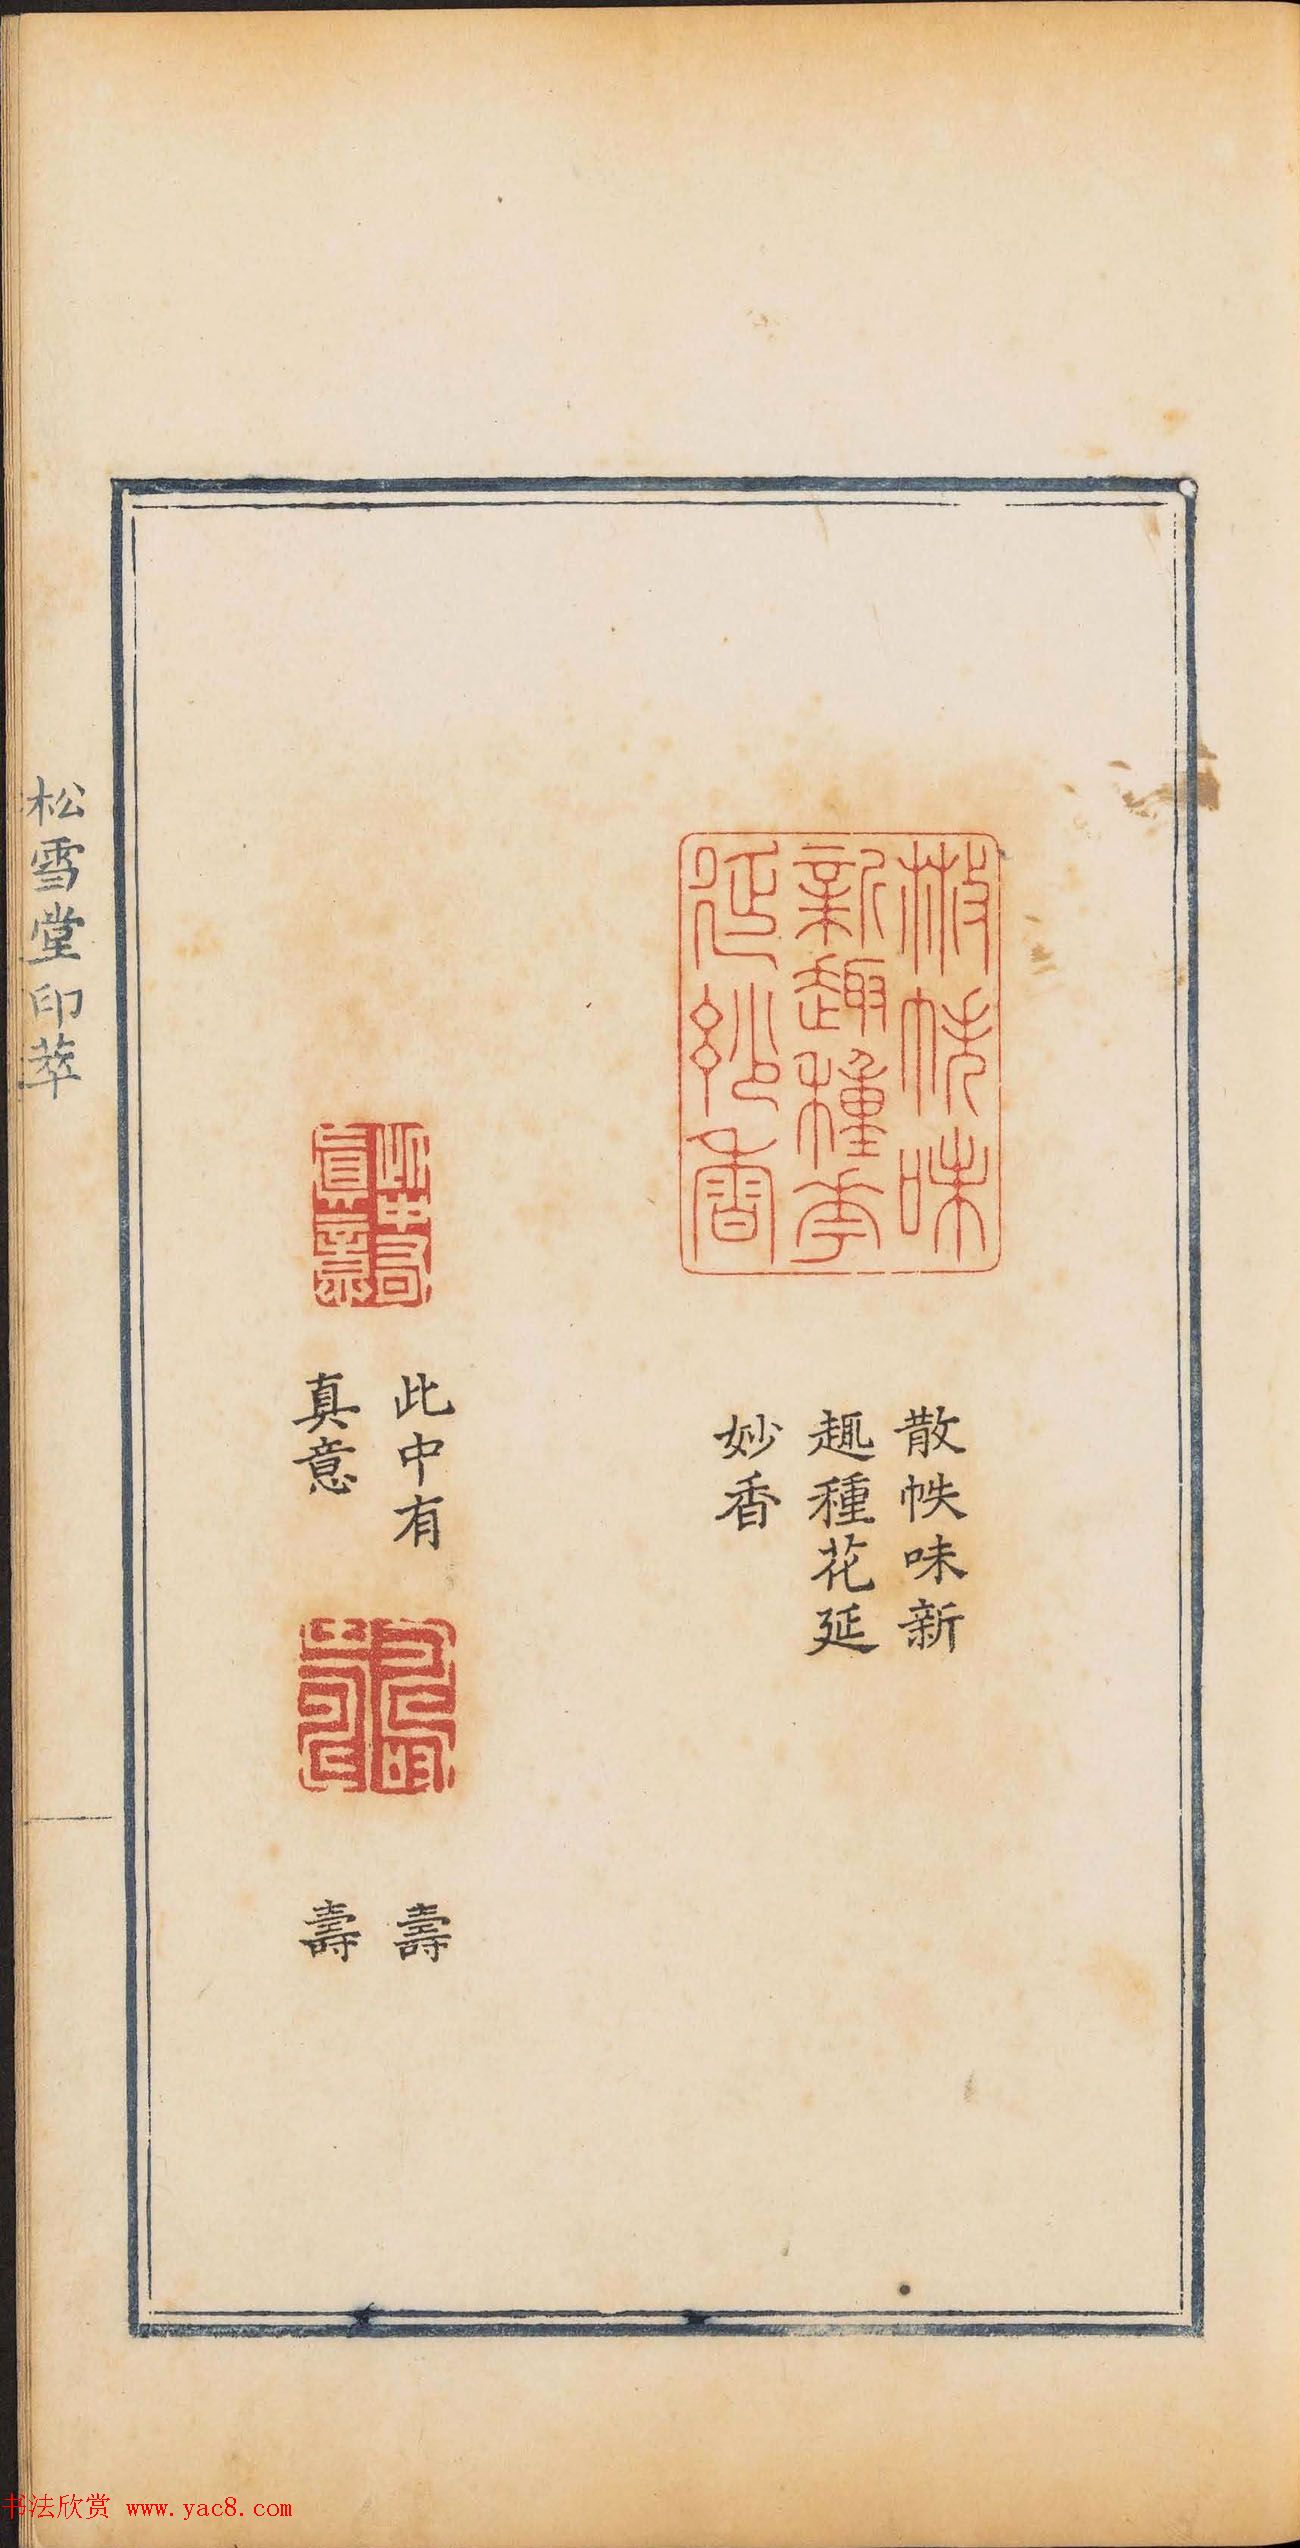 散帙味新
趣種花延
妙香
散帙味新
趣種花延
妙香
此中有
真意
此中有
真意
壽
壽
壽
壽
松雪堂印萃
书法欣赏 www.yac8.com